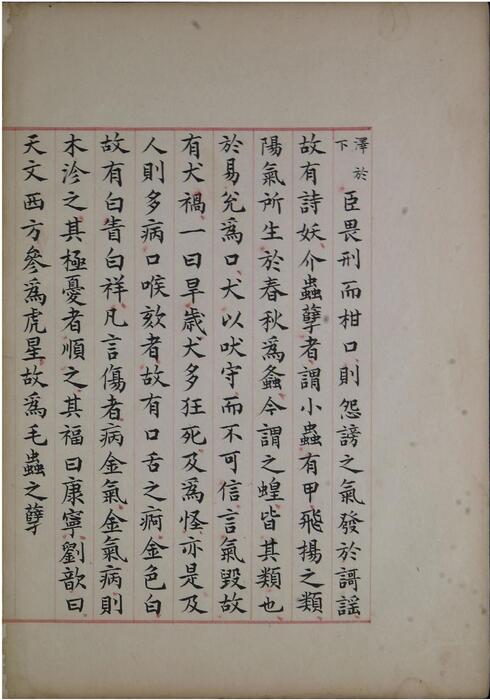 澤於下臣畏刑而柑口則怨謗之氣發於謌謠
故有詩妖介蟲孽者謂小蟲有甲飛揚之類
陽氣所生於春秋爲螽今謂之蝗皆其類也
於易兌爲口犬以吠守而不可信言氣毀故
有犬禍一曰旱歲犬多狂死及爲怪亦是及
人則多病口喉欬者故有口舌之痾金色白
故有白眚白祥凡言傷者病金氣金氣病則
木沴之其極憂者順之其福曰康寧劉歆曰
天文西方參爲虎星故爲毛蟲之孽